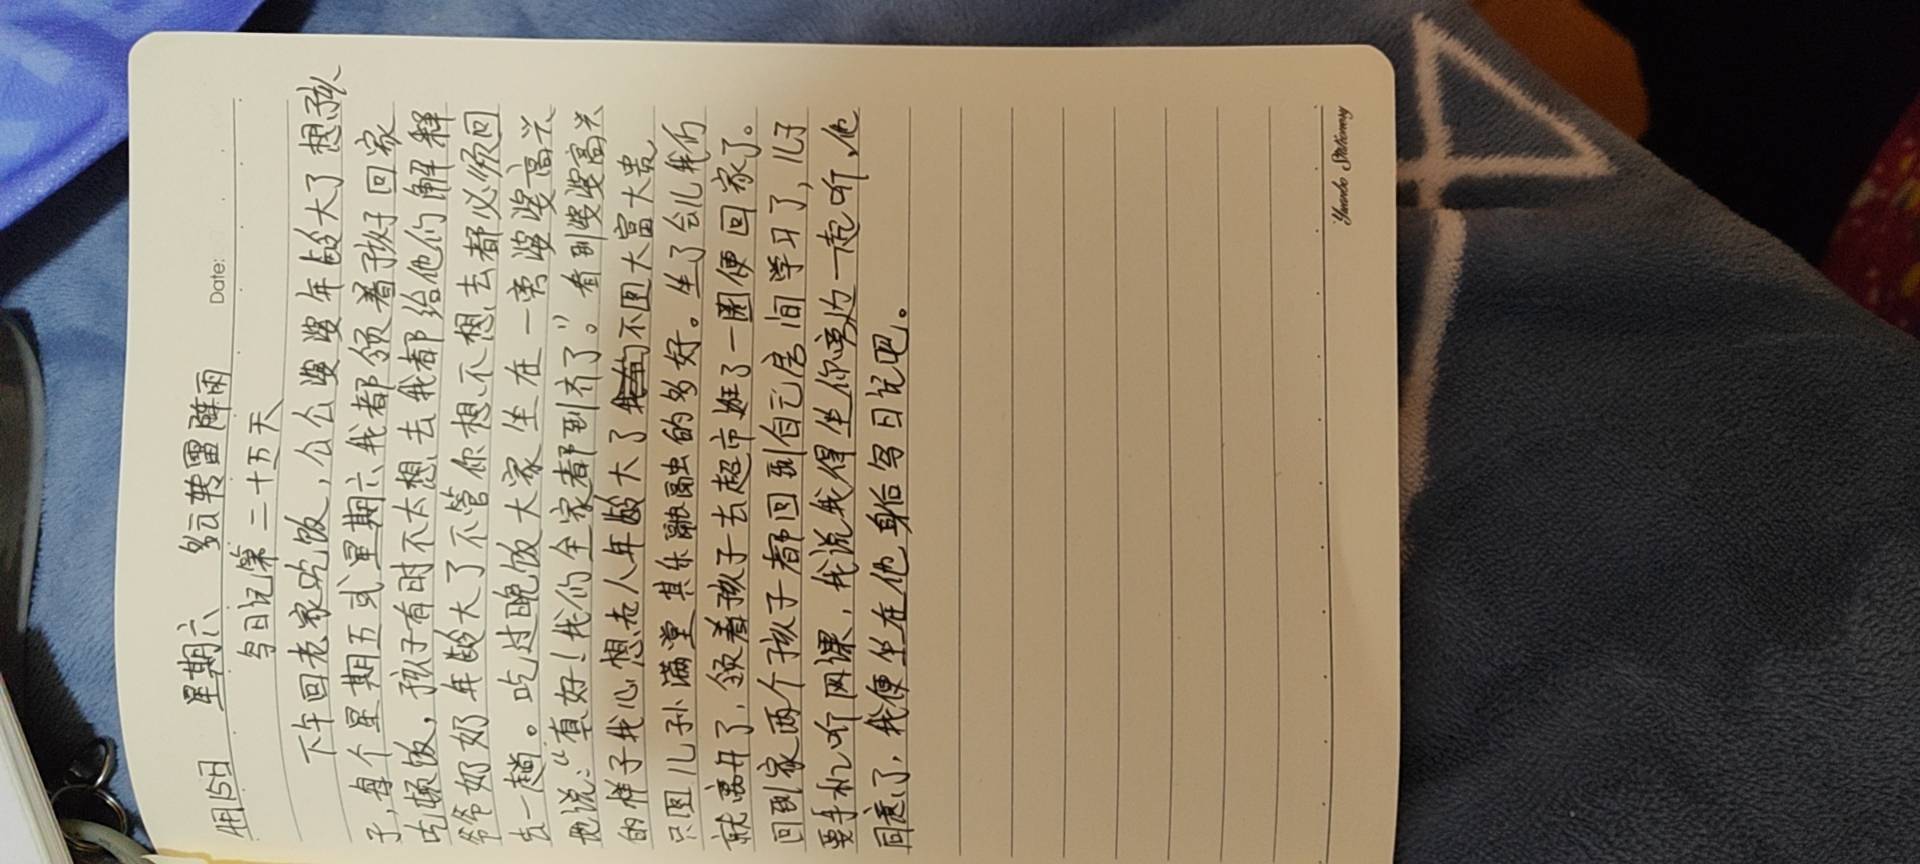 Date:
4月15日 星期六 多云转雷阵雨
写日记第二十五天
下午回老家吃饭，公公婆婆年龄大了想孩
子，每个星期五或星期六我都领着孩子回家
吃顿饭，孩子有时不太想去我都给他们解释
爷爷奶奶年龄大了不管你想不想去都必须回
去一趟。吃过晚饭大家坐在一旁婆婆高兴
地说：“真好！我们全家都到齐了。”看到婆婆高兴
的样子我心想老人年龄大了不图大富大贵
只图儿子孙满堂其乐融融的多好。坐了会儿我们
就离开了，领着孩子去超市逛了一圈便回家了。
回到家两个孩子都回到自己房间学习了，儿子
要手机听网课，我说我得坐你旁边一起听，他
同意了，我便坐在他身后写日记吧。
Yimendo Stationery